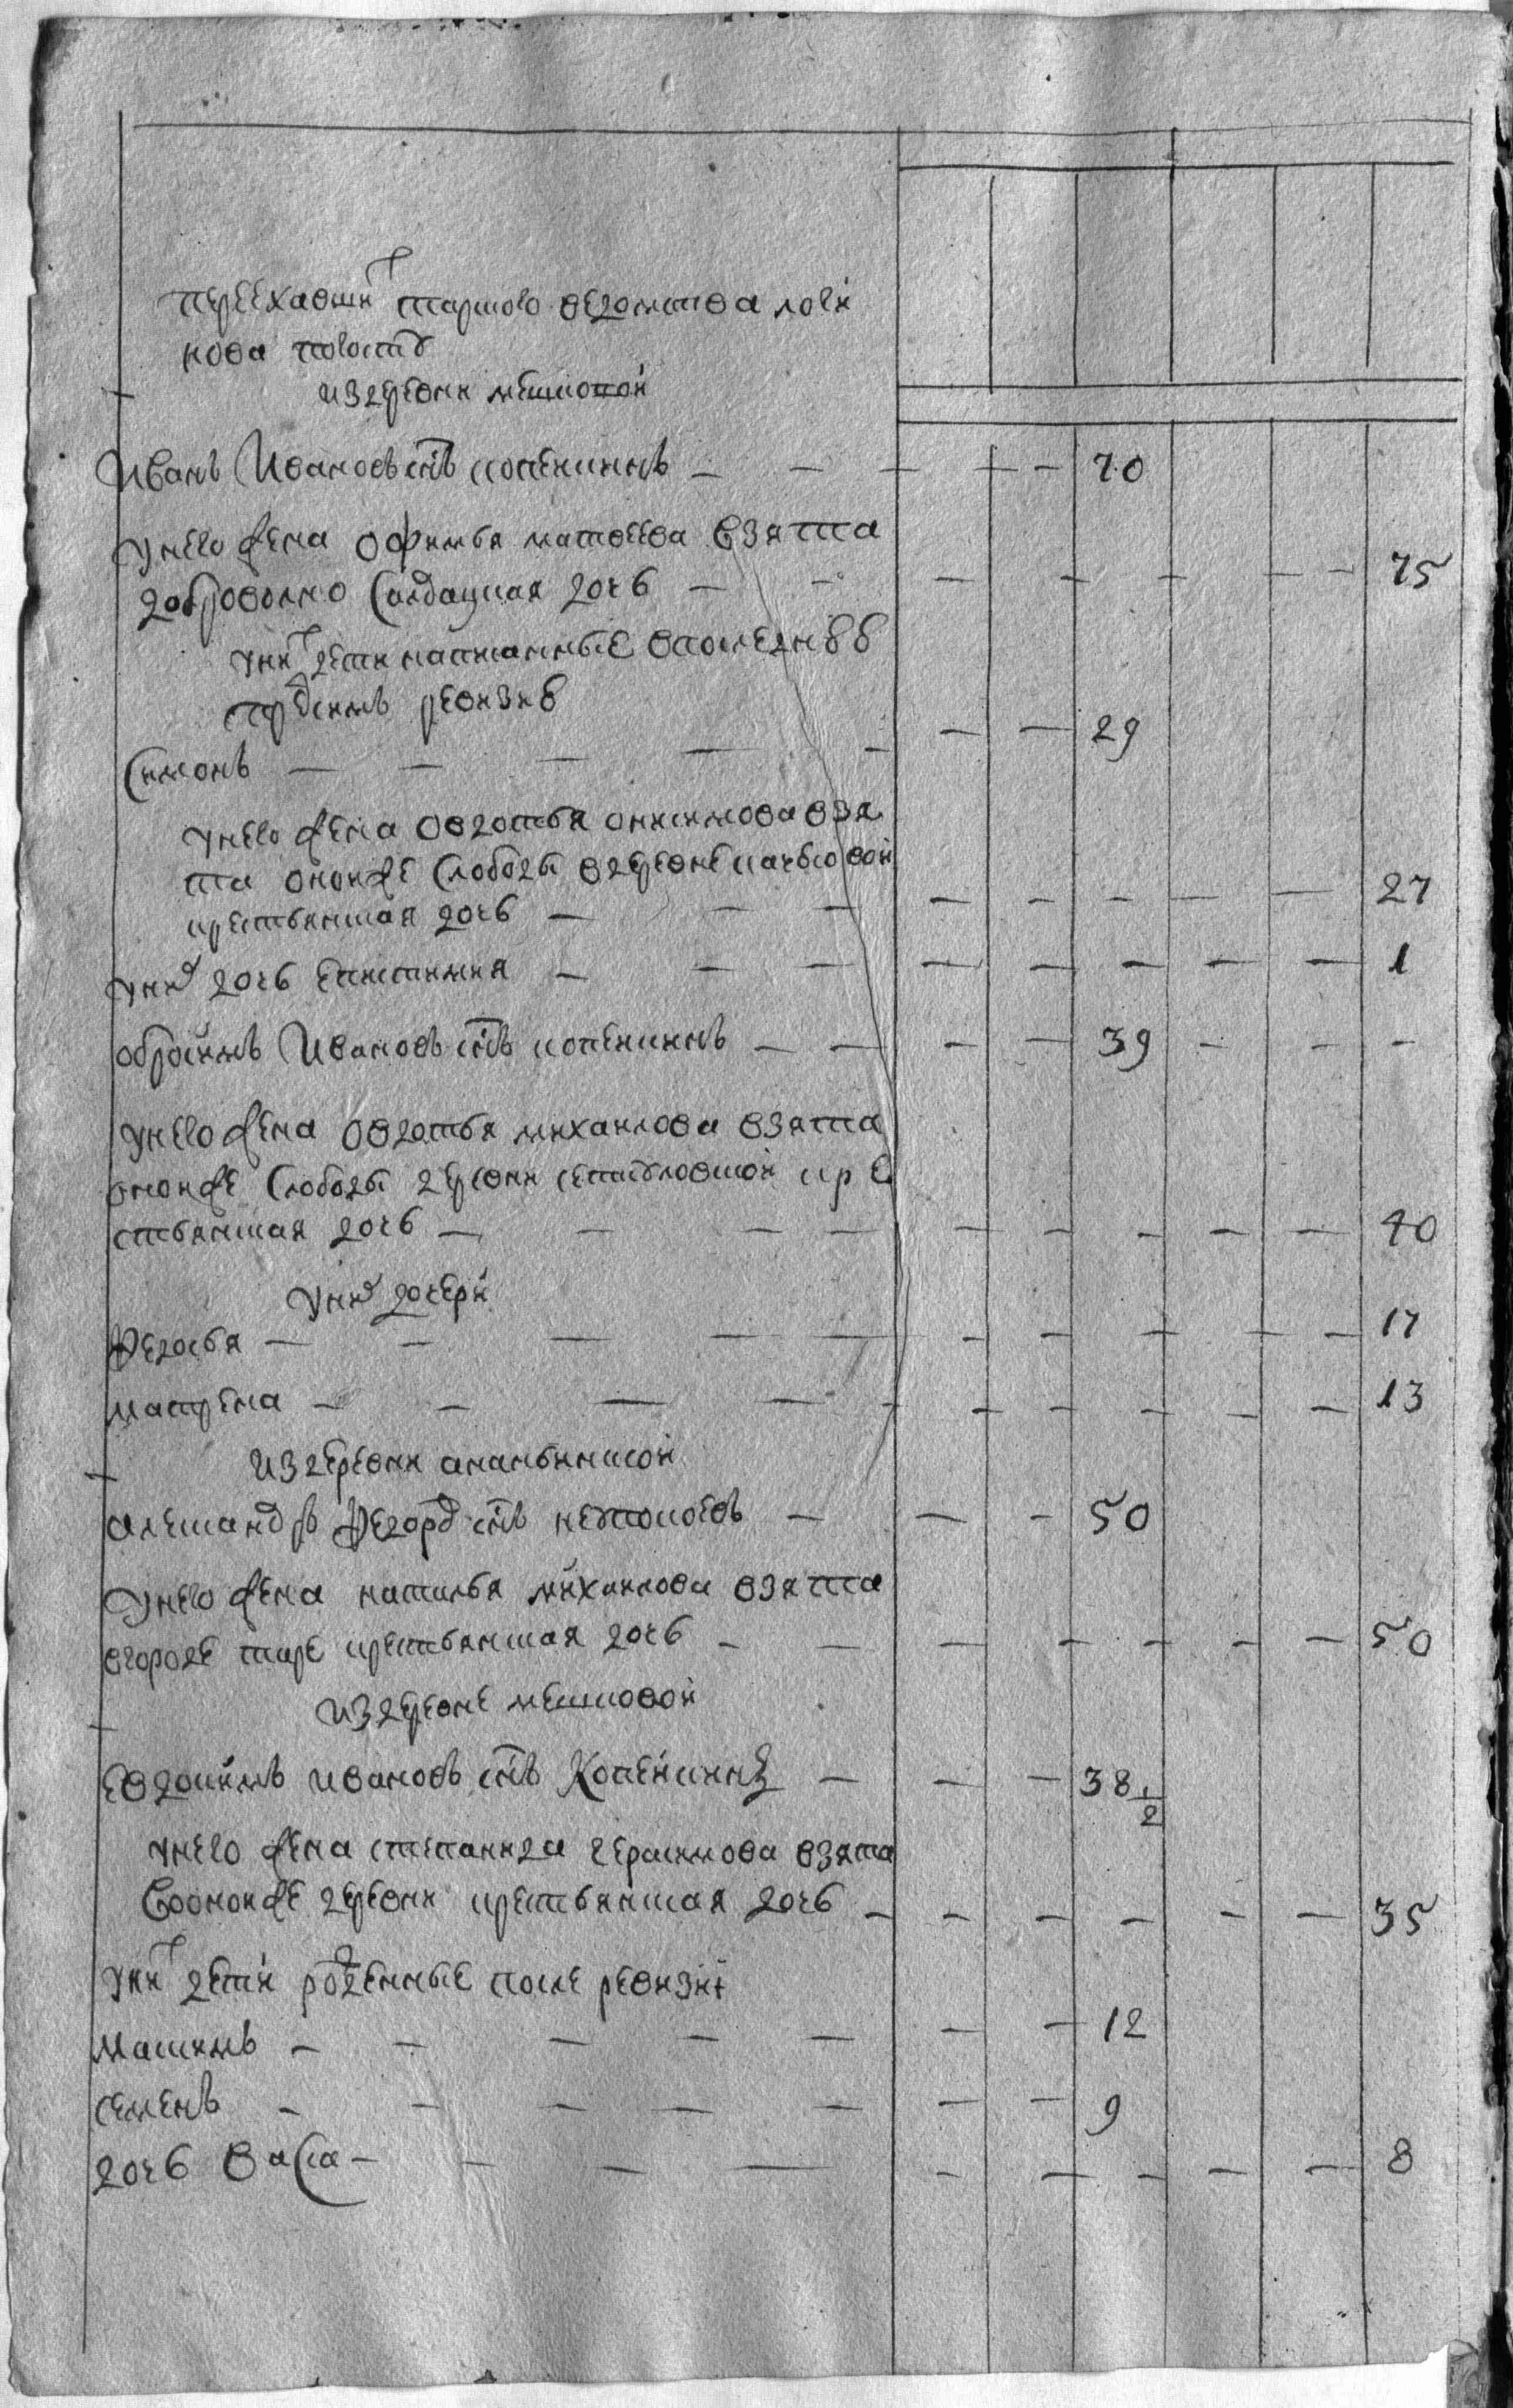 переехавших тарского ведомства логи
нова погосту
из деревни мешковой
Иванъ Ивановъ снъ копейкинъ — — — — — 70
У него жена офимья матвеева взята
доброволно салдацкая дочь — — — — — — — 75
у них дети написанные в последнюю
пред сим ревизию
Симонъ — — — — — — — 29
у него жена овдотья онисимова взя
та оной же слободы в деревне
крестьянская дочь — — — — — — — — 27
у них дочь епистимия — — — — — — — — 1
обросимъ Ивановъ снъ копейкинъ — — — — 39 — — —
у него жена овдотья михаилова взята
оной же слободы деревни кре
стьянская дочь — — — — — — — — — 40
у них дочери
Федосья — — — — — — — — — — 17
матрена — — — — — — — — — — 13
из деревни ананьинской
александръ Федоровъ снъ — — — 50
У него жена наталья михаилова взята
в городе таре крестьянская дочь — — — — — — — 50
из деревне мешковой
Евдокимъ ивановъ снъ Копейкинъ — — — 38 1/2
у него жена степанида герасимова взята
во оной же деревни крестьянская дочь — — — — — — 35
у них дети рожденные после ревизии
Максимъ — — — — — — — 12
семенъ — — — — — — — 9
дочь Васса — — — — — — — — — 8